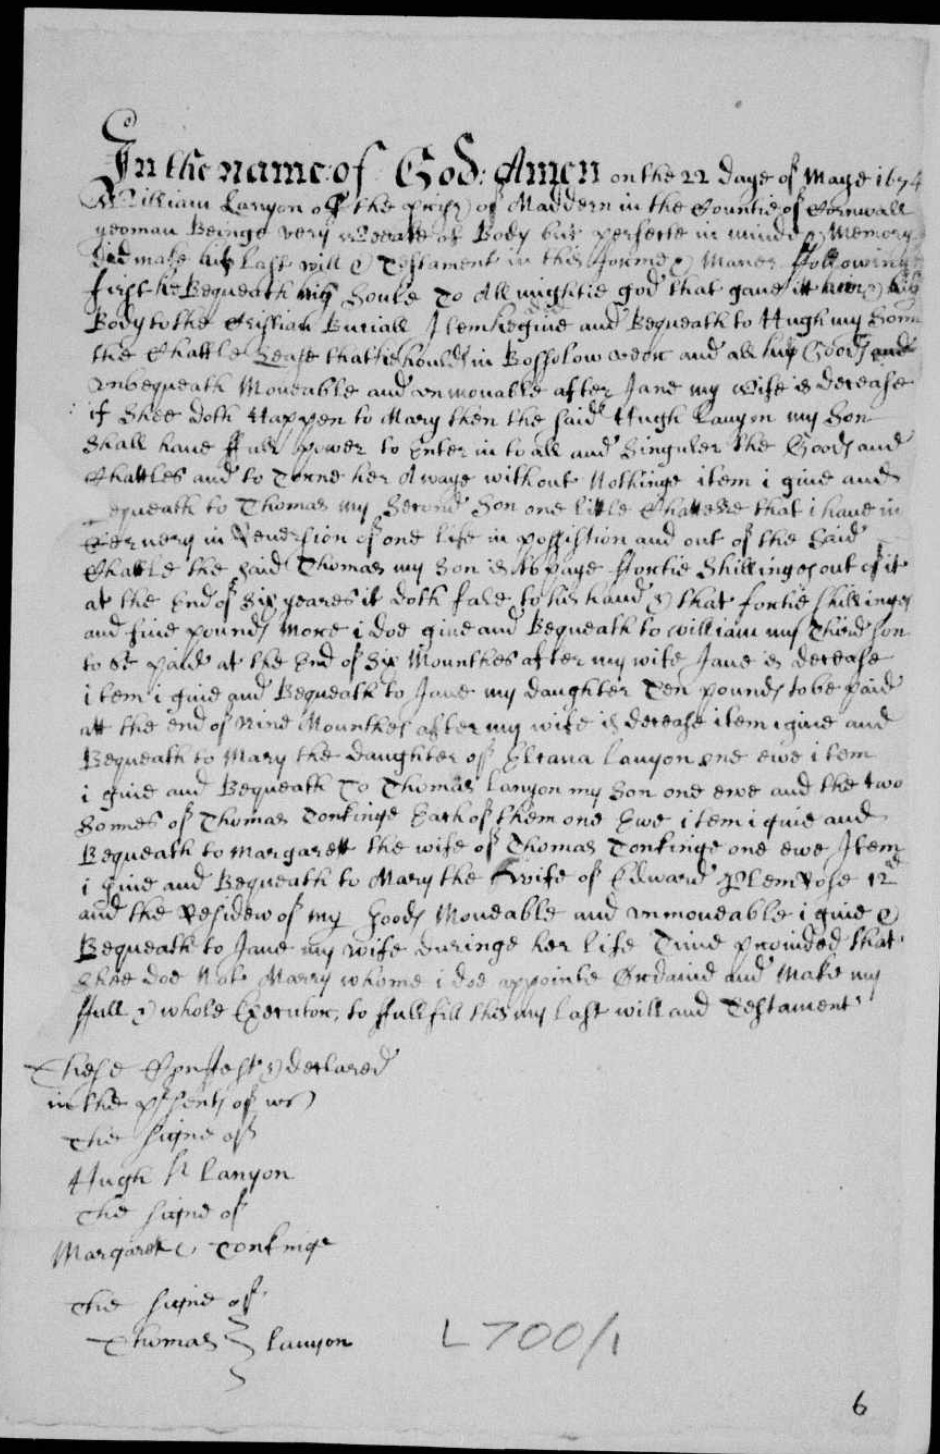 In the name of God: Amen on the 22 daye of Maye 1674
William Lanyon off the of Maddern in the Countie of Cornwall
yeoman Beinge very Weeake of Body but perfecte in minde & Memory
did make his Last will & Testament in this forme & Maner ffollowinge
first he Bequeath his Soule To All mightie god that gave itt him & his
Body to the Cristian Buriall Item he give and Bequeath to Hugh my Sonn
the Chattle Lease that he hould in Bossolow and all his Goods and
Unbequeath Moveable and unmovable after Jane my Wife is decease
if Shee doth Happen to Mary then the said Hugh Lanyon my Son
Shall have ffull power to Enter in to all and Singuler the Goods and
Chattles and to Turne her Awaye without Nothinge item i give and
Bequeath to Thomas my Second Son one little Chattle that i have in
in Reversion of one life in possistion and out of the Said
Chattle the said Thomas my Son is to paye ffortie Shillinges out of it
at the End of Six yeares it doth fale to his hand & that fortie shillinges
and five pounds More i doe give and Bequeath to william my Third Son
to be paide at the End of Six Mounthes after my wife Jane is decease
item i give and Bequeath to Jane my daughter Ten pounds to be paid
att the end of Nine Mounthes after my wife is decease item i give and
Bequeath to Mary the daughter of Lanyon one ewe item
i give and Bequeath To Thomas Lanyon my Son one ewe and the two
Sonnes of Thomas Tonkinge Each of them one Ewe item i give and
Bequeath to Margarett the wife of Thomas Tonkinge one ewe Item
i give and Bequeath to Mary the wife of Edward 12d
and the Residew of my Goods Moveable and unmoveable i give &
Bequeath to Jane my wife duringe her life Time provided that
Shee doe Not Marry whome i doe appointe Ordaind and Make my
ffull & whole Executor, to ffullfill this my last will and Testament
These Confest & declared
in the psents of us
The signe off
Hugh Lanyon
The signe of
Margaret Tonkinge
The signe off
Thomas Lanyon
L700/1
6